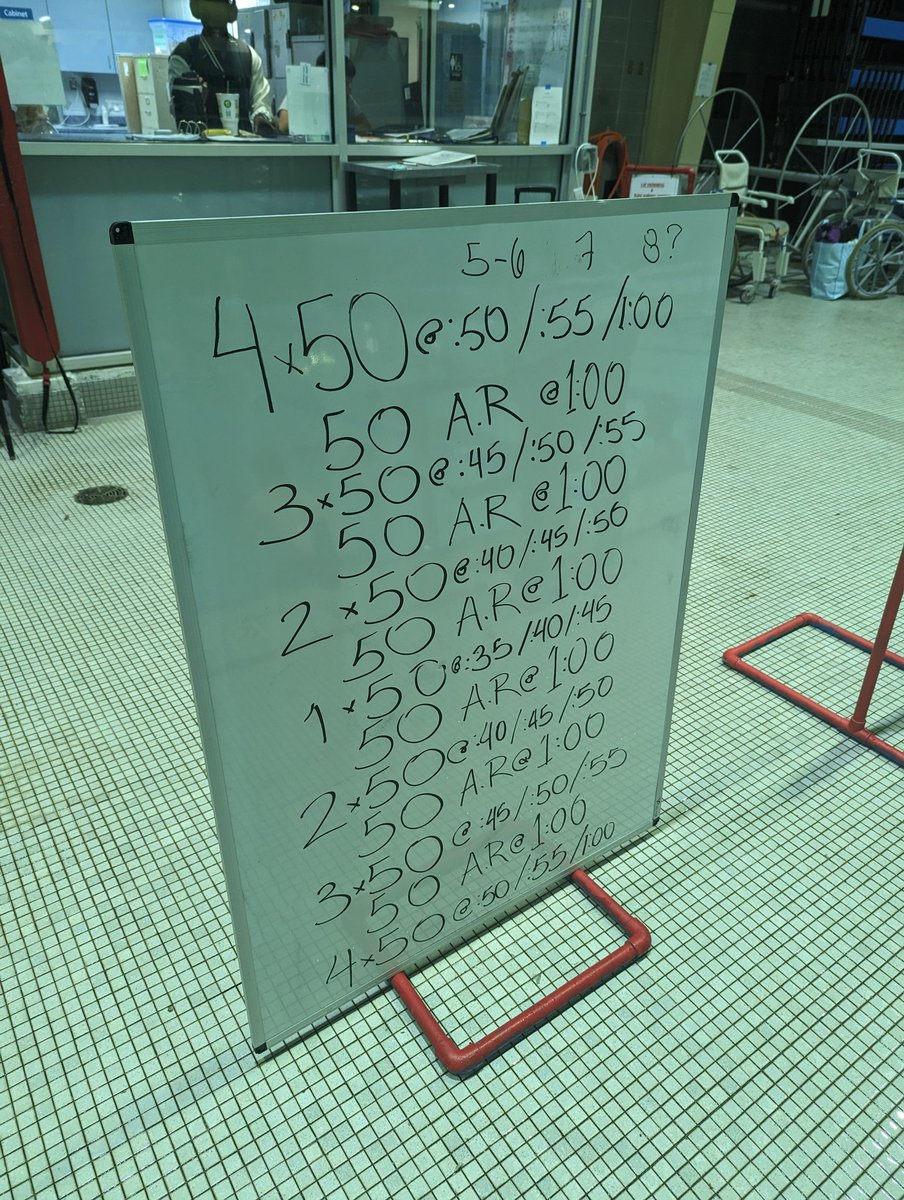 Cabinet
5-6 7 8?
4x50 @ :50 / :55 / 1:00
50 A.R @ 1:00
3x50 @ :45 / :50 / :55
50 A.R @ 1:00
2x50 @ :40 / :45 / :50
50 A.R @ 1:00
1x50 @ :35 / :40 / :45
50 A.R @ 1:00
2x50 @ :40 / :45 / :50
50 A.R @ 1:00
3x50 @ :45 / :50 / :55
50 A.R @ 1:00
4x50 @ :50 / :55 / 1:00